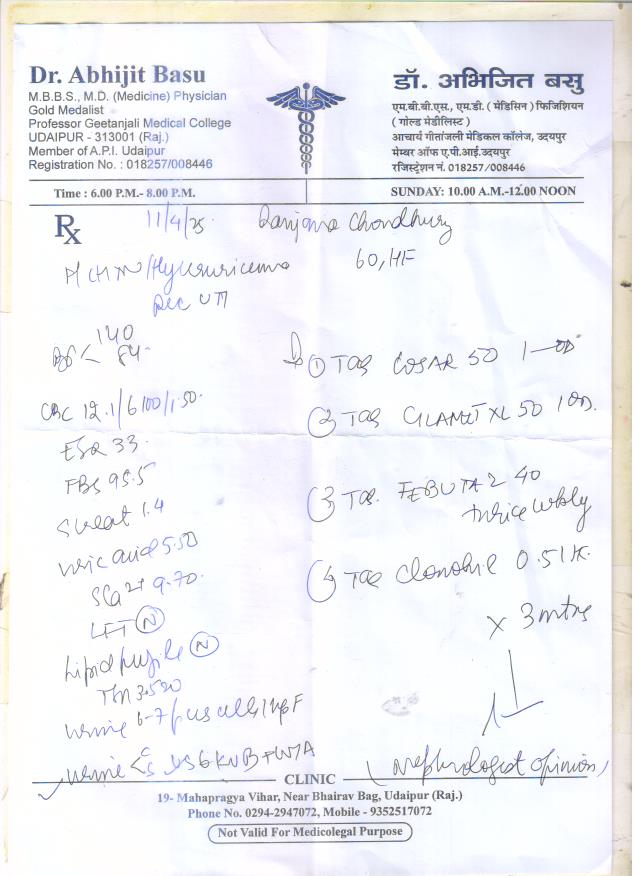 Dr. Abhijit Basu
M.B.B.S., M.D. (Medicine) Physician
Gold Medalist
Professor Geetanjali Medical College
UDAIPUR - 313001 (Raj.)
Member of A.P.I. Udaipur
Registration No. : 018257/008446
डॉ. अभिजित बसु
एम.बी.बी.एस., एम.डी. ( मेडिसिन ) फिजिशियन
( गोल्ड मेडीलिस्ट )
आचार्य गीतांजली मेडिकल कॉलेज, उदयपुर
मेम्बर ऑफ ए.पी.आई.उदयपुर
रजिस्ट्रेशन नं. 018257 /008446
Time : 6.00 P.M.- 8.00 P.M.
SUNDAY: 10.00 A.M.-12.00 NOON
Rx
11/4/25. Ranjana Choudhury
60, HF
HTN/Hyperuricemia
Rec UTI
BP < 140
84
CBC 12.1/6100/1.50.
ESR 33.
FBS 95.5
Screat 1.4
Uric acid 5.50
SCa2+ 9.70.
LFT (N)
Lipid profile (N)
TSH 3.520
Urine 6-7 pus cells/HPF
Urine
USG KUB + W/A
① TAB COSAR 50 1 OD
② TAB GLAMET XL 50 1 OD.
③ TAB. FEBUTAZ 40
thrice wkly
④ TAB Clonotril 0.5 1 H.
x 3 mths
(Nephrologist opinion)
CLINIC
19- Mahapragya Vihar, Near Bhairav Bag, Udaipur (Raj.)
Phone No. 0294-2947072, Mobile - 9352517072
Not Valid For Medicolegal Purpose